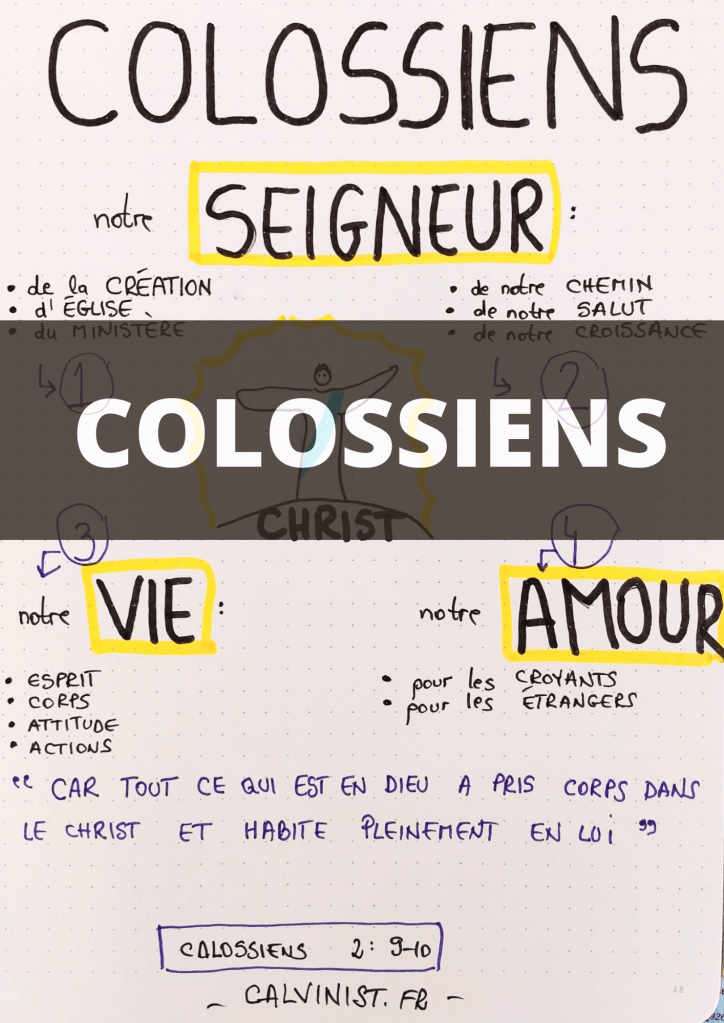 COLOSSIENS
notre SEIGNEUR :
• de la CRÉATION
• d'ÉGLISE
• du MINISTÈRE
• de notre CHEMIN
• de notre SALUT
• de notre CROISSANCE
1
2
COLOSSIENS
CHRIST
3
4
notre VIE :
• ESPRIT
• CORPS
• ATTITUDE
• ACTIONS
notre AMOUR
• pour les CROYANTS
• pour les ÉTRANGERS
“ CAR TOUT CE QUI EST EN DIEU A PRIS CORPS DANS
LE CHRIST ET HABITE PLEINEMENT EN LUI ”
COLOSSIENS 2 : 9-10
- CALVINIST.FR -
48